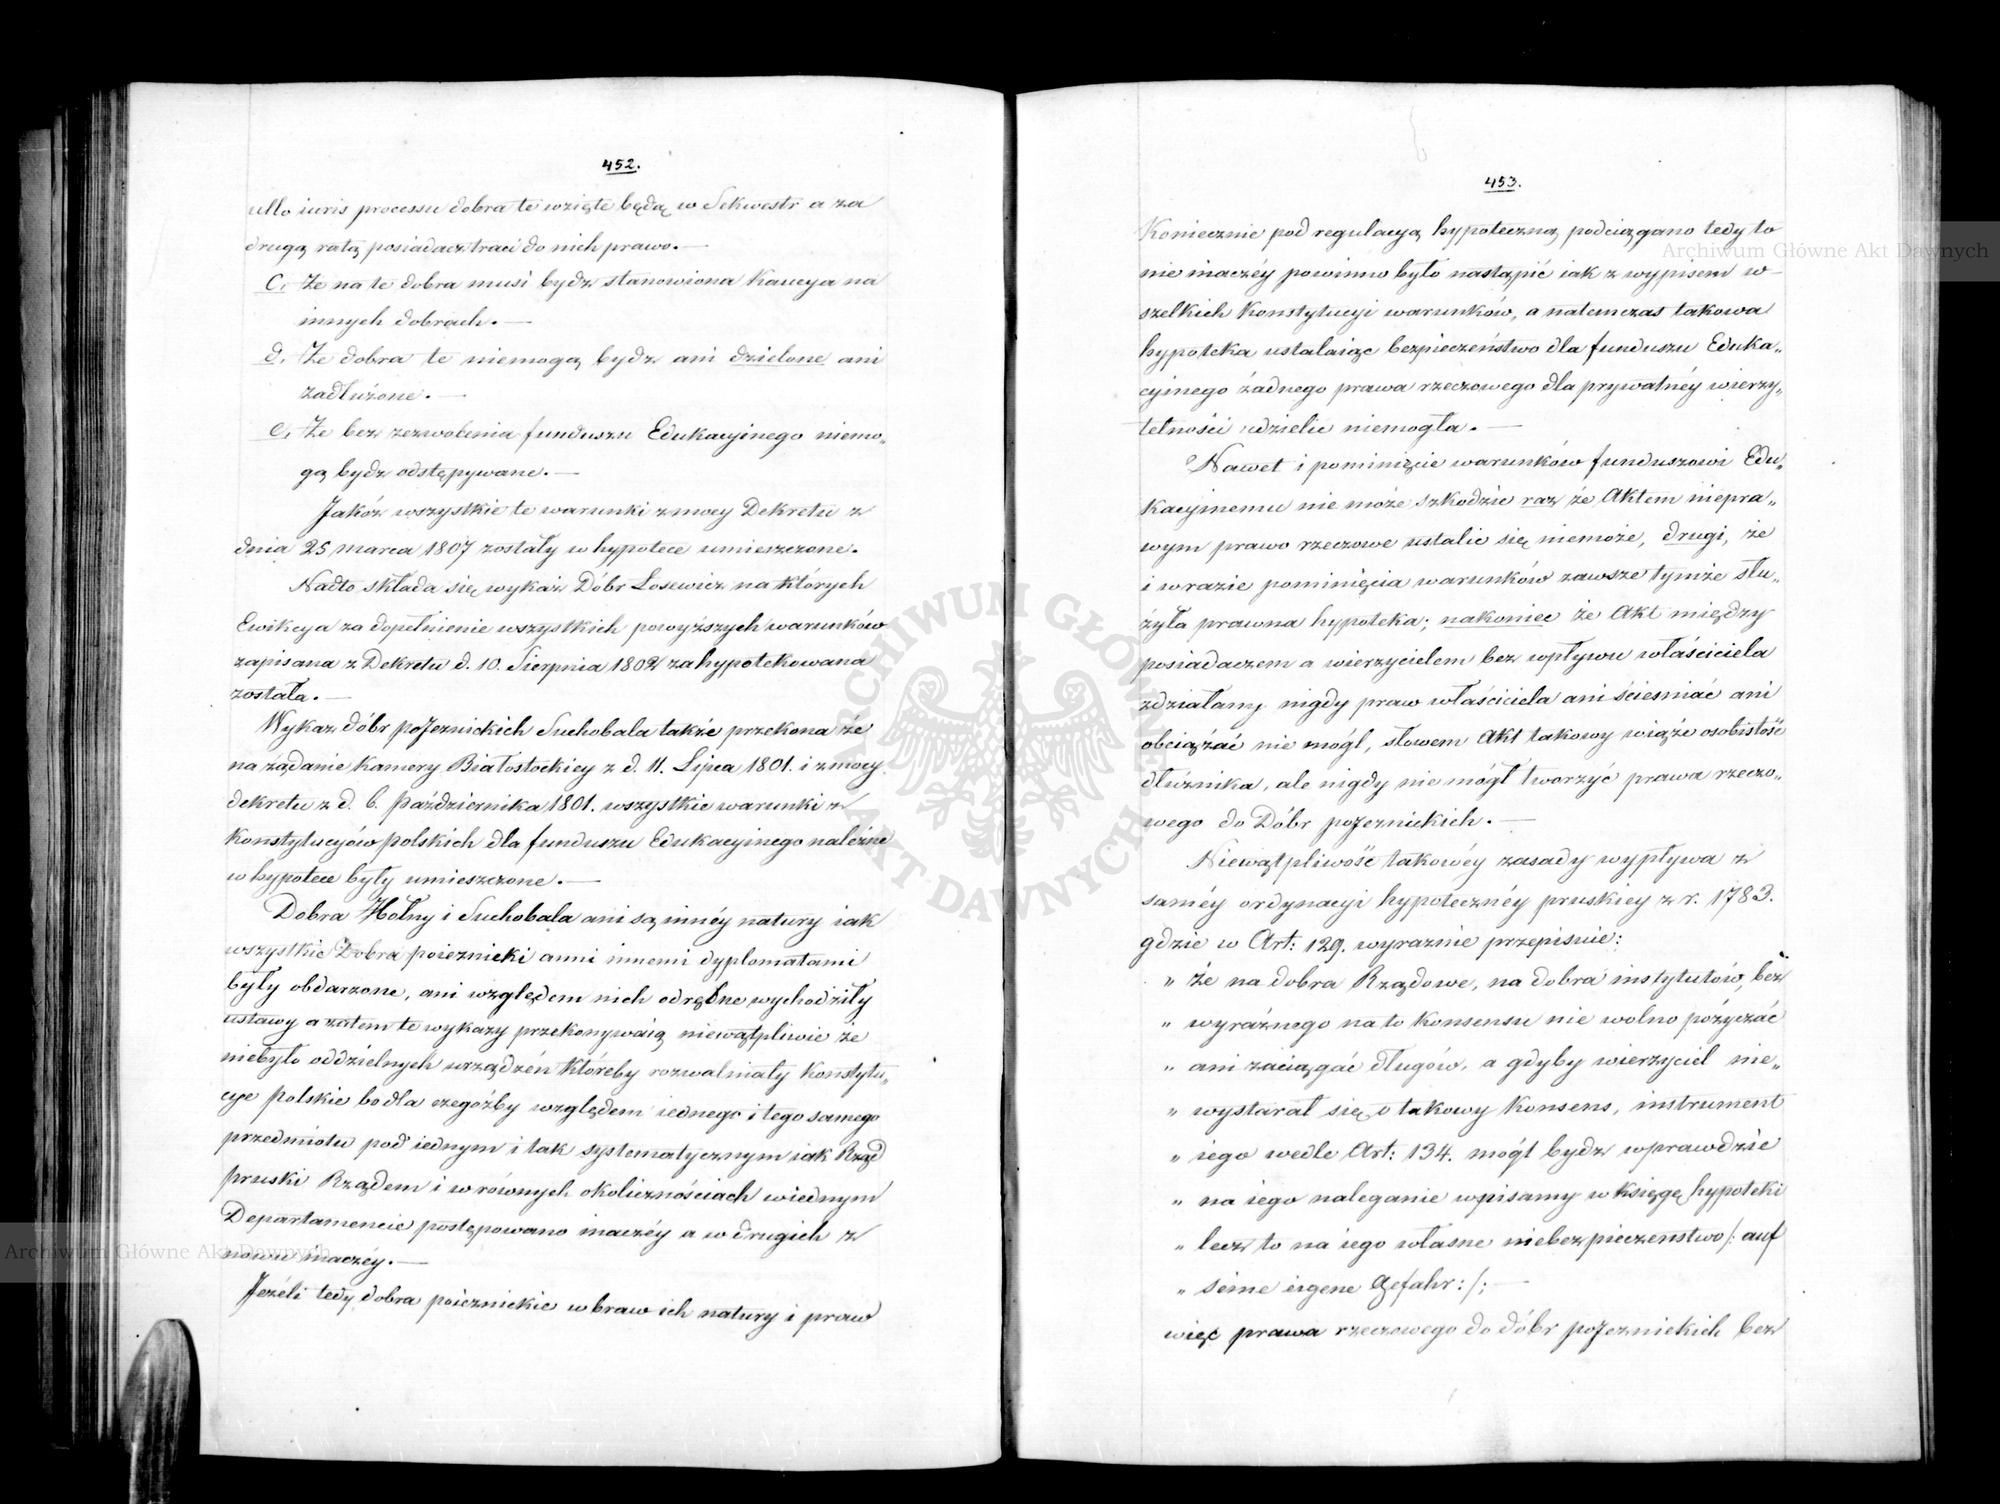 452.
ullo iuris processu dobra te wzięte będą w Sekwestr a za
drugą ratą posiadacz traci do nich prawo.—
c, Że na te dobra musi bydz stanowiona Kaucya na
innych dobrach.—
d, Że dobra te niemogą bydz ani dzielone ani
zadłużone.—
e, Że bez zezwolenia funduszu Edukacyinego niemo„
gą bydz odstępywane.—
Jakóż wszystkie te warunki z mocy Dekretu z
dnia 25 marca 1807 zostały w hypotece umieszczone.
Nadto składa się wykaz Dóbr Łosewicz na których
Ewikcya za dopełnienie wszystkich powyższych warunków
zapisana z Dekretu d. 10. Sierpnia 1802 zahypotekowana
została.—
Wykaz dóbr poJeznickich Suchobala także przekona że
na żądanie Kamery Białostockiey z d. 11. Lipca 1801. i z mocy
dekretu z d. 6. Października 1801. wszystkie warunki z
Konstytucyów polskich dla funduszu Edukacyinego należne
w hypotece były umieszczone.—
Dobra Hołny i Suchobala ani są innéy natury iak
wszystkie Dobra poieznicki anni innemi dyplomatami
były obdarzone, ani względem nich odrębne wychodziły
ustawy a zatem te wykazy przekonywaią niewątpliwie że
niebyło oddzielnych urządzéń któreby rozwalniały Konstytu„
cye Polskie bo dla czegożby względem iednego i tego samego
przedmiotu pod iednym i tak systematycznym iak Rząd
pruski Rządem i w równych okolicznościach w iednym
Departamencie postępowano inaczéy a w drugich z
nowu inaczéy.—
Jeżéli tedy dobra poieznickie wbraw ich natury i praw
453.
Koniecznie pod regulacyą hypoteczną podciągano tedy to
nie inaczéy powinno było nastąpić iak z wypisem w
szelkich Konstytucyi warunków, a natemczas takowa
hypoteka ustalaiąc bezpieczeństwo dla funduszu Eduka„
cyinego żadnego prawa rzeczowego dla prywatnéy wierzy„
telności udzielic niemogła.—
Nawet i pominięcie warunków funduszowi Edu„
kacyinemu nie może szkodzic raz że Aktem niepra„
wym prawo rzeczowe ustalic się niemoże, drugi, że
i w razie pominięcia warunków zawsze tymże słu„
żyła prawna hypoteka; nakoniec że Akt między
posiadaczem a wierzycielem bez wpływu właściciela
zdziałany nigdy praw właściciela ani ścieśniać ani
obciążać nie mógl, słowem Akt takowy wiąże osobistość
dłużnika, ale nigdy nie mógł tworzyć prawa rzeczo„
wego do Dóbr poJeznickich.—
Niewątpliwość takowéy zasady wypływa z
saméy ordynacyi hypotecznéy pruskiey z r. 1783.
gdzie w Art: 129. wyraznie przepisuie:
„ że na dobra Rządowe, na dobra instytutów, bez
„ wyraźnego na to Konsensu nie wolno pożyczać
„ ani zaciągać długów, a gdyby wierzyciel nie„
„ wystarał się o takowy Konsens, instrument
„ iego wedle Art: 134. mógł bydz wprawdzie
„ na iego naleganie wpisamy w księgę hypoteki
„ lecz to na iego własne niebezpieczenstwo /: auf
„ seine eigene Gefahr: /;—
więc prawa rzeczowego do dóbr poJeznickich bez
Archiwum Główne Akt Dawnych
Archiwum Główne Akt Dawnych
ARCHIWUM GŁÓWNE AKT DAWNYCH